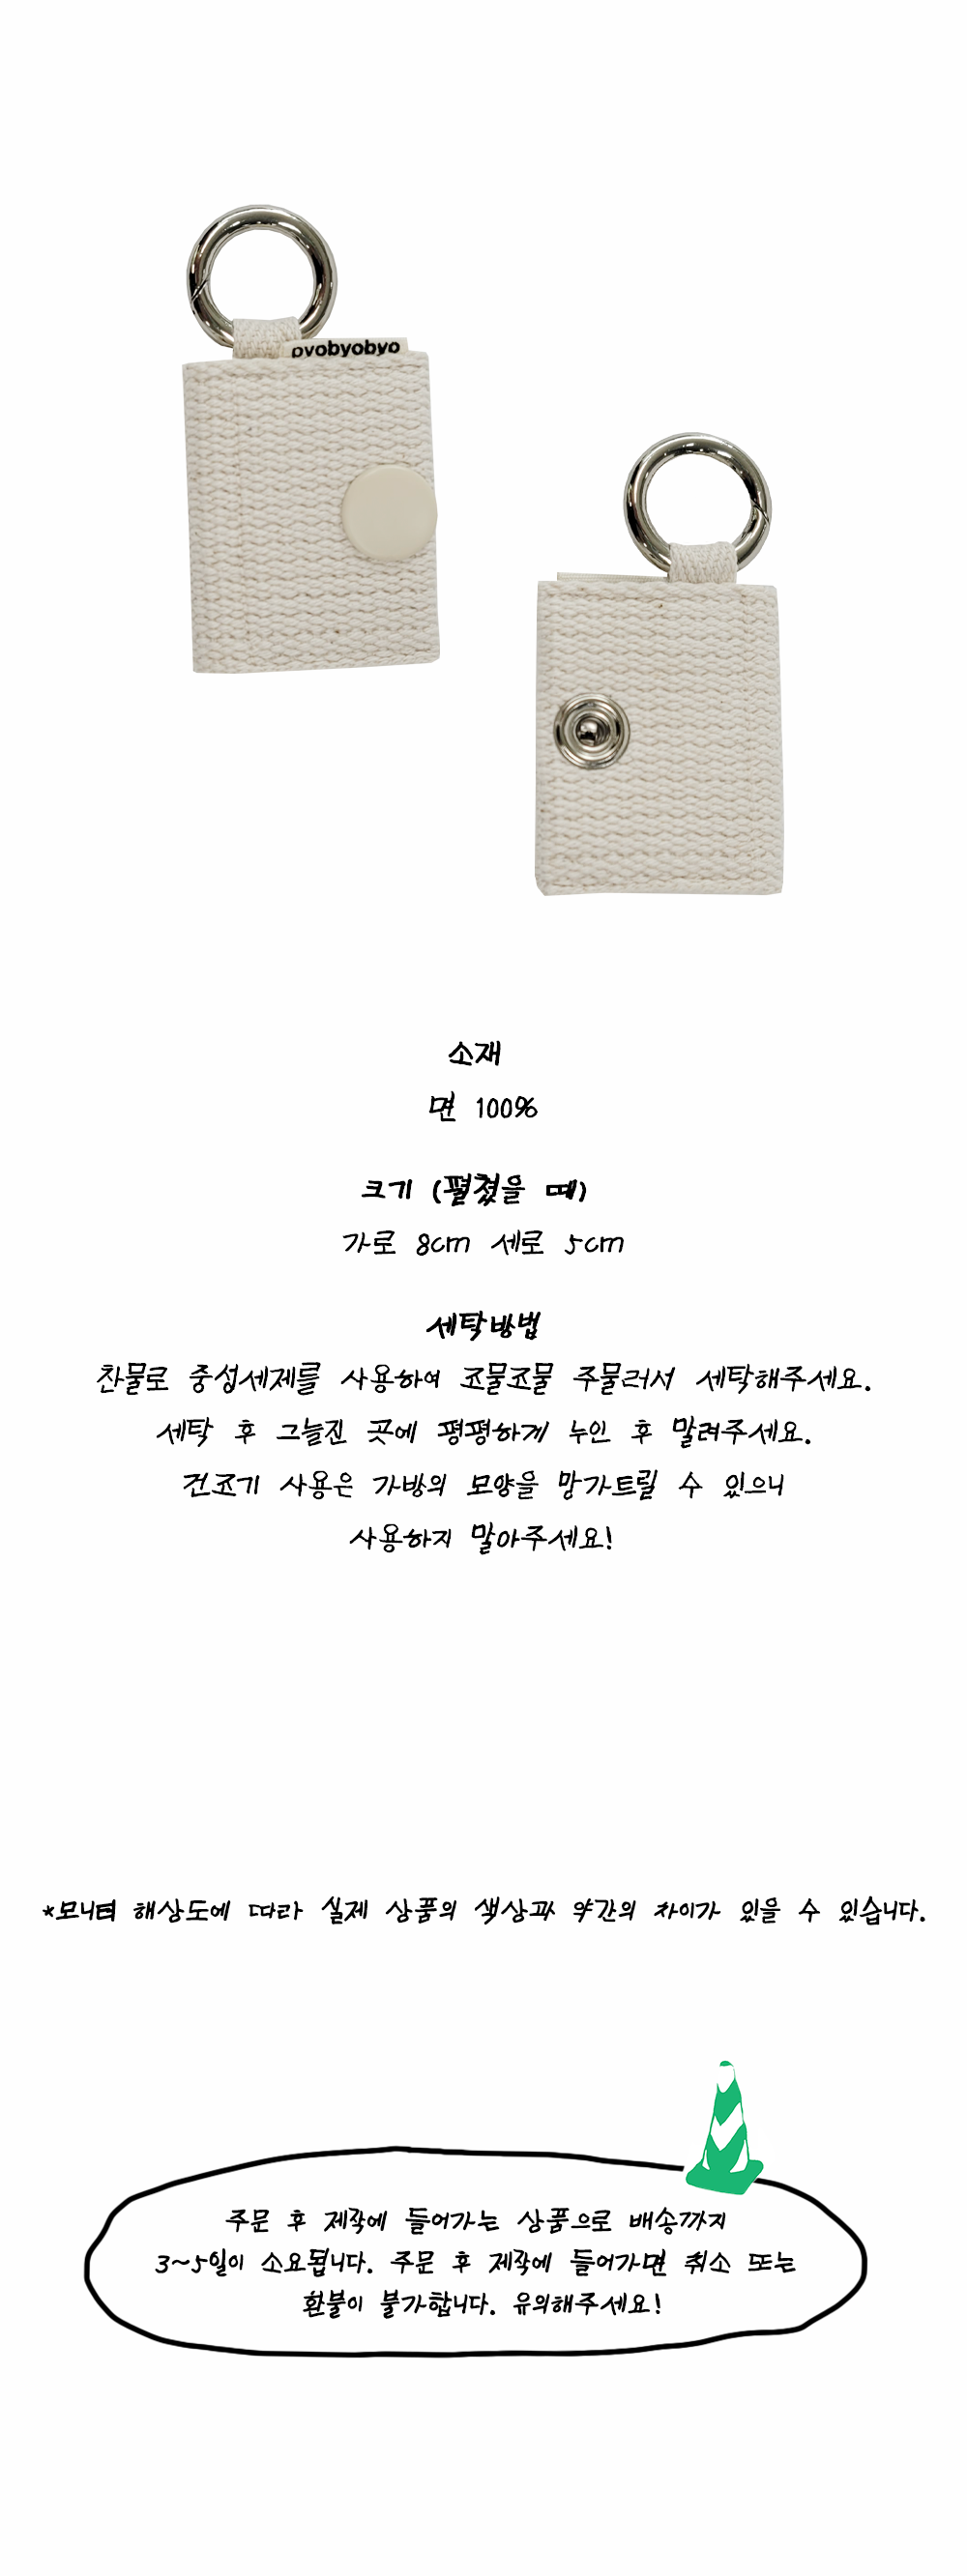 pyobyobyo
소재
면 100%
크기 (펼쳤을 때)
가로 8cm 세로 5cm
세탁방법
찬물로 중성세제를 사용하여 조물조물 주물러서 세탁해주세요.
세탁 후 그늘진 곳에 평평하게 누인 후 말려주세요.
건조기 사용은 가방의 모양을 망가트릴 수 있으니
사용하지 말아주세요!
*모니터 해상도에 따라 실제 상품의 색상과 약간의 차이가 있을 수 있습니다.
주문 후 제작에 들어가는 상품으로 배송까지
3~5일이 소요됩니다. 주문 후 제작에 들어가면 취소 또는
환불이 불가합니다. 유의해주세요!